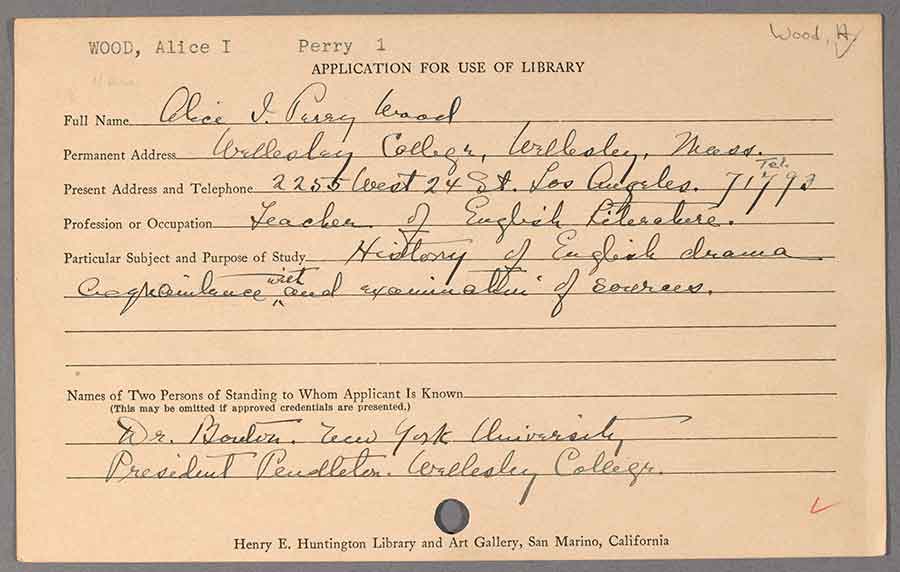 WOOD, Alice I Perry 1
Wood, H
APPLICATION FOR USE OF LIBRARY
Full Name Alice I. Perry Wood
Permanent Address Wellesley College, Wellesley, Mass.
Tel.
Present Address and Telephone 2255 West 24 St. Los Angeles.
Profession or Occupation Teacher of English Literature.
Particular Subject and Purpose of Study History of English drama
with
Acquaintance ^ and examination of sources.
Names of Two Persons of Standing to Whom Applicant Is Known
(This may be omitted if approved credentials are presented.)
Dr. Bouton. New York University
President Pendleton. Wellesley College.
Henry E. Huntington Library and Art Gallery, San Marino, California